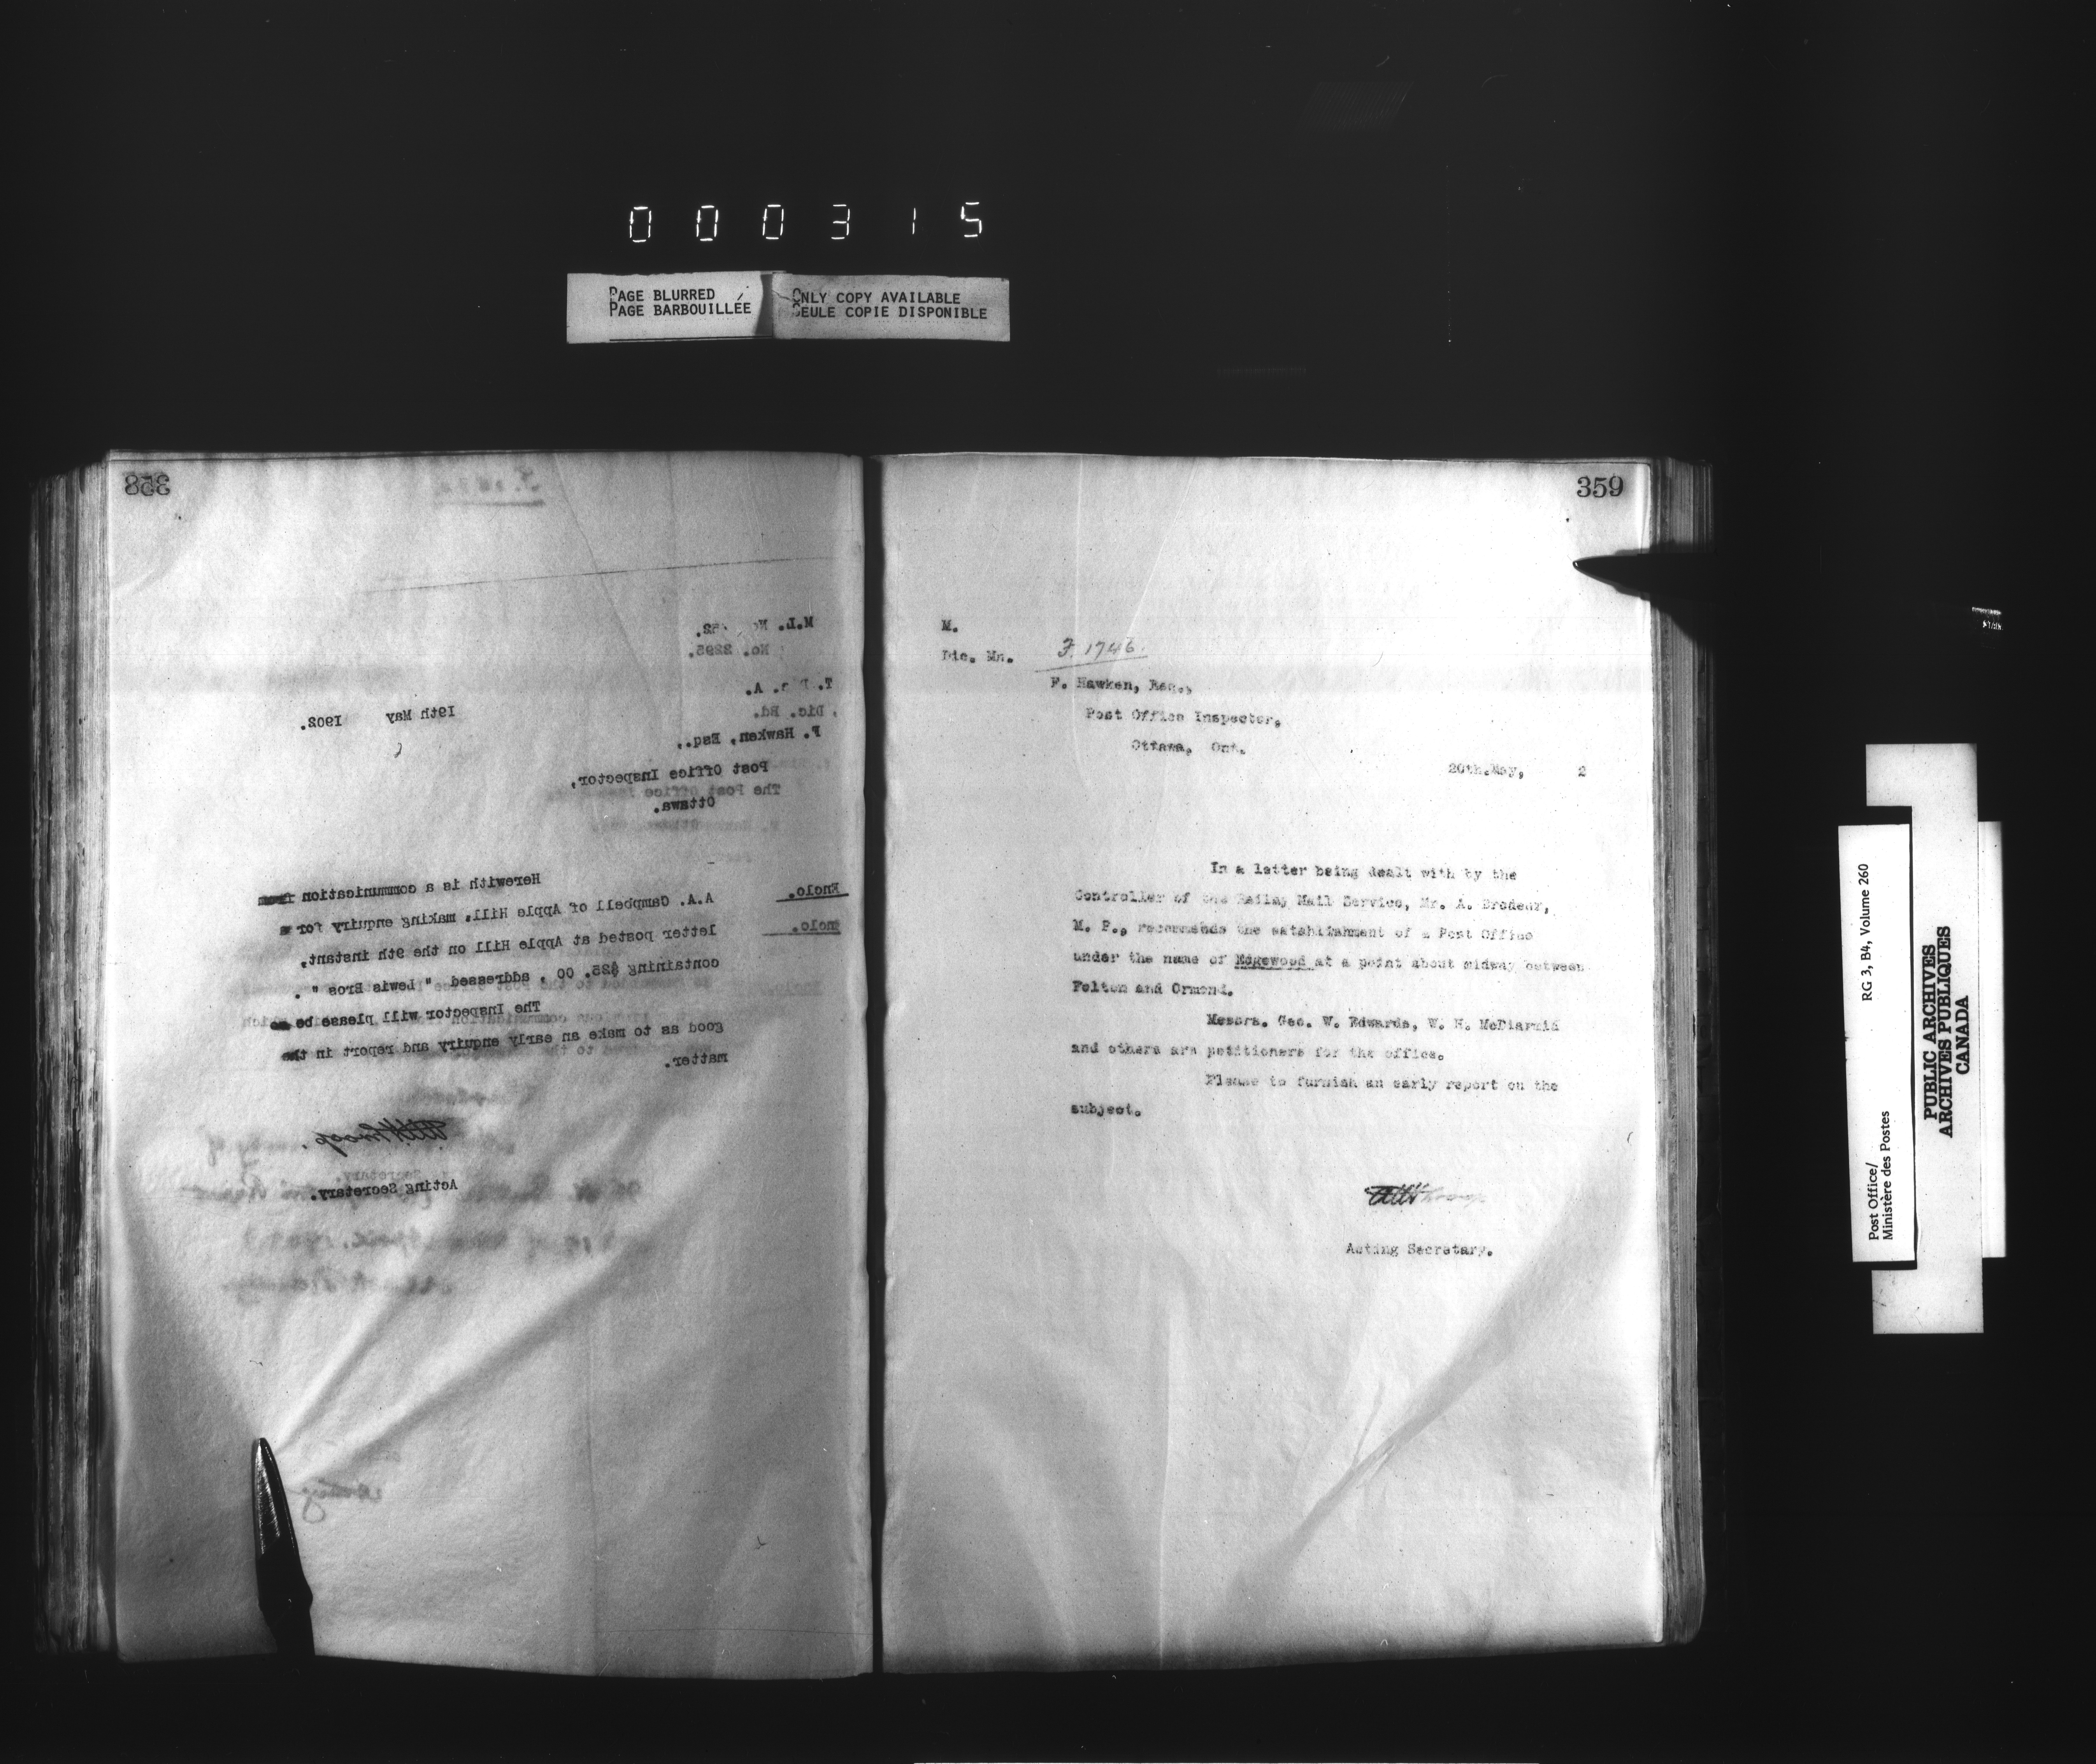 000315
PAGE BLURRED
PAGE BARBOUILLÉE
ONLY COPY AVAILABLE
SEULE COPIE DISPONIBLE
358
M.L. No. 92.
No. 2295.
A.
Dic. Ed.
19th May 1902.
F. Hawken, Esq.,
Post Office Inspector,
Ottawa.
Herewith is a communication from
Enclo.
A.A. Campbell of Apple Hill, making enquiry for a
Enclo.
letter posted at Apple Hill on the 9th instant,
containing $25. 00 , addressed " Lewis Bros " .
The Inspector will please be so
good as to make an early enquiry and report in the
matter.
Acting Secretary.
359
M.
Dic. Mn.
F. 1746.
F. Hawken, Esq.,
Post Office Inspector,
Ottawa, Ont.
20th.May, 2
In a letter being dealt with by the
Controller of the Railway Mail Service, Mr. A. Brodeur,
M. P., recommends the establishment of a Post Office
under the name of Edgewood at a point about midway between
Felton and Ormond.
Messrs. Geo. W. Edwards, W. H. McDiarmid
and others are petitioners for the office.
Please to furnish an early report on the
subject.
Acting Secretary.
RG 3, B4, Volume 260
Post Office/
Ministère des Postes
PUBLIC ARCHIVES
ARCHIVES PUBLIQUES
CANADA